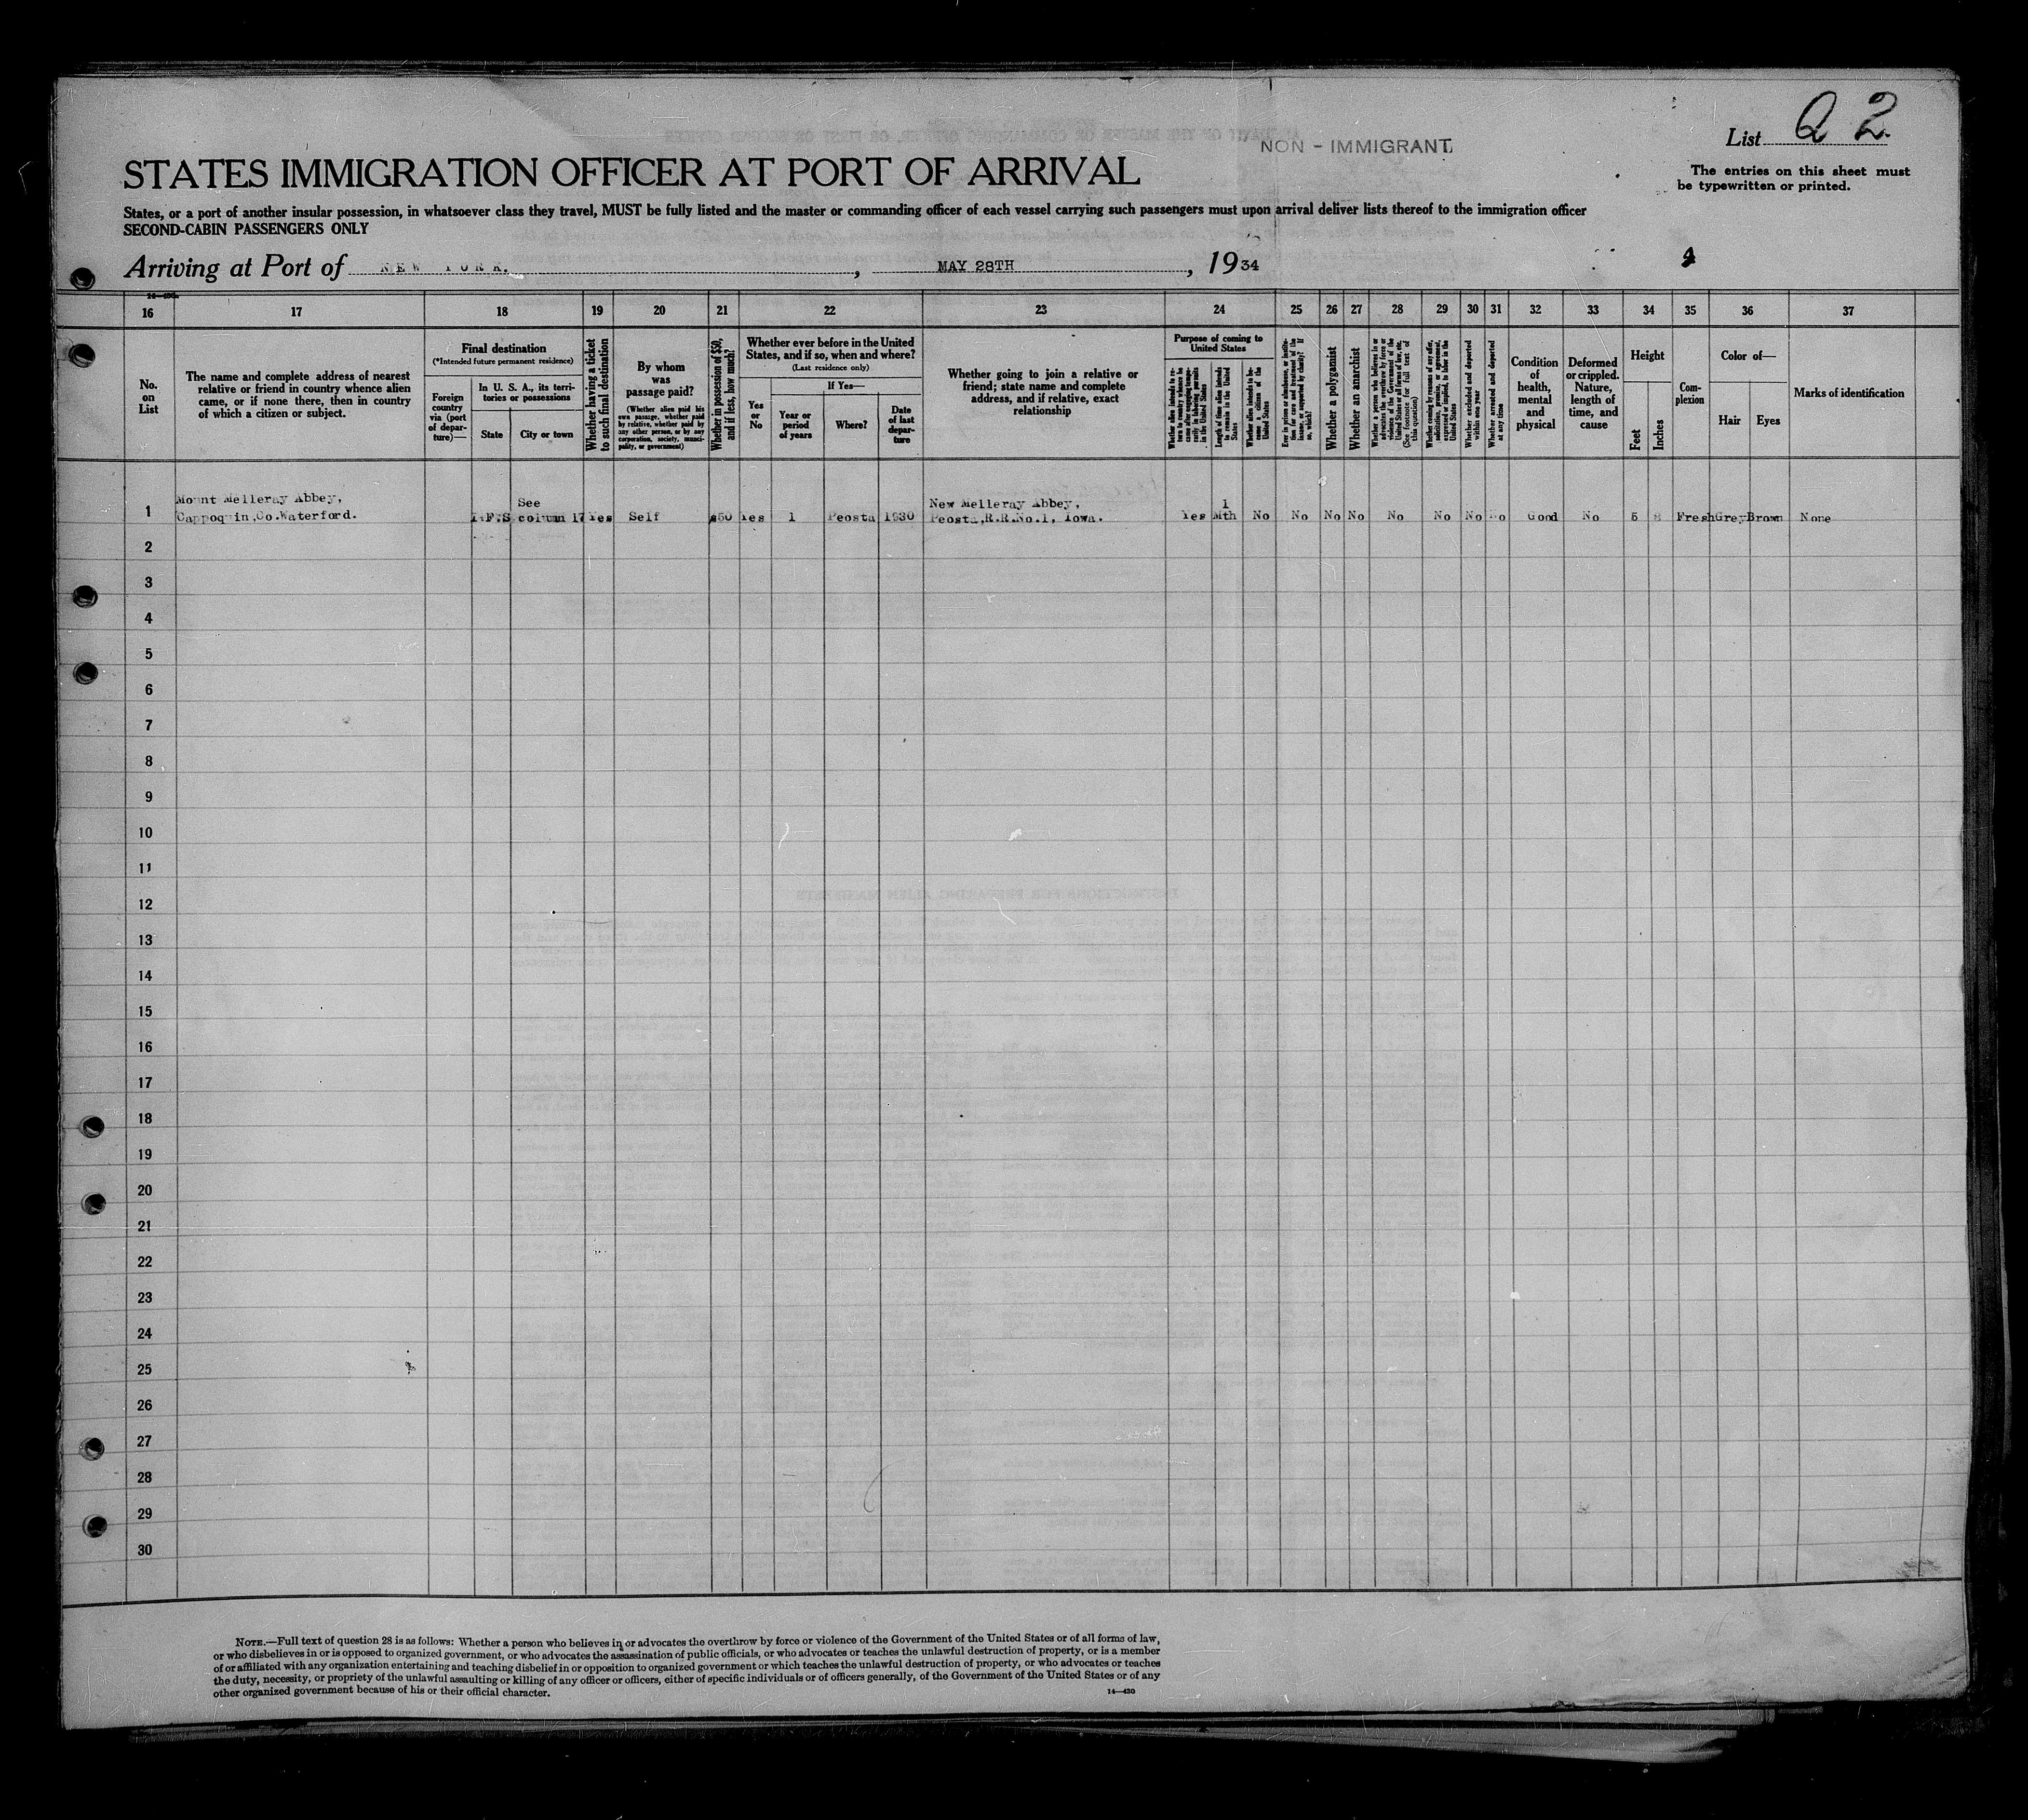 List Q 2
NON - IMMIGRANT
The entries on this sheet must
be typewritten or printed.
STATES IMMIGRATION OFFICER AT PORT OF ARRIVAL
States, or a port of another insular possession, in whatsoever class they travel, MUST be fully listed and the master or commanding officer of each vessel carrying such passengers must upon arrival deliver lists thereof to the immigration officer
SECOND-CABIN PASSENGERS ONLY
Arriving at Port of NEW YORK. , MAY 28TH , 1934
16 17 18 19 20 21 22 23 24 25 26 27 28 29 30 31 32 33 34 35 36 37
No.
on
List
The name and complete address of nearest
relative or friend in country whence alien
came, or if none there, then in country
of which a citizen or subject.
Final destination
(*Intended future permanent residence)
Foreign
country
via (port
of depar-
ture)—
In U. S. A., its terri-
tories or possessions
State
City or town
Whether having a ticket
to such final destination
By whom
was
passage paid?
(Whether alien paid his
own passage, whether paid
by relative, whether paid by
any other person, or by any
corporation, society, munici-
pality, or government)
Whether in possession of $50,
and if less, how much?
Whether ever before in the United
States, and if so, when and where?
(Last residence only)
Yes
or
No
If Yes—
Year or
period
of years
Where?
Date
of last
depar-
ture
Whether going to join a relative or
friend; state name and complete
address, and if relative, exact
relationship
Purpose of coming to
United States
Whether alien intends to re-
turn to country whence he
came after engaging tempo-
rarily in laboring pursuits
in the United States
Length of time alien intends
to remain in the United
States
Whether alien intends to be-
come a citizen of the
United States
Ever in prison or almshouse, or institu-
tion for care and treatment of the
insane, or supported by charity? If
so, which?
Whether a polygamist
Whether an anarchist
Whether a person who believes in or
advocates the overthrow by force or
violence of the Government of the
United States or all forms of law, etc.
(See footnote for full text of
this question)
Whether coming by reasons of any offer,
solicitation, promise, or agreement,
expressed or implied, to labor in the
United States
Whether excluded and deported
within one year
Whether arrested and deported
at any time
Condition
of
health,
mental
and
physical
Deformed
or crippled.
Nature,
length of
time, and
cause
Height
Feet
Inches
Com-
plexion
Color of—
Hair
Eyes
Marks of identification
Mount Melleray Abbey, See New Melleray Abbey, 1
1 Cappoquin,Co.Waterford. I.F.S column 17 Yes Self $50 Yes 1 Peosta 1930 Peosta,R.R.No.1, Iowa. Yes Mth No No No No No No No No Good No 5 8 Fresh Grey Brown None
2
3
4
5
6
7
8
9
10
11
12
13
14
15
16
17
18
19
20
21
22
23
24
25
26
27
28
29
30
NOTE.—Full text of question 28 is as follows: Whether a person who believes in or advocates the overthrow by force or violence of the Government of the United States or of all forms of law,
or who disbelieves in or is opposed to organized government, or who advocates the assassination of public officials, or who advocates or teaches the unlawful destruction of property, or is a member
of or affiliated with any organization entertaining and teaching disbelief in or opposition to organized government or which teaches the unlawful destruction of property, or who advocates or teaches
the duty, necessity, or propriety of the unlawful assaulting or killing of any officer or officers, either of specific individuals or of officers generally, of the Government of the United States or of any
other organized government because of his or their official character.
14—430